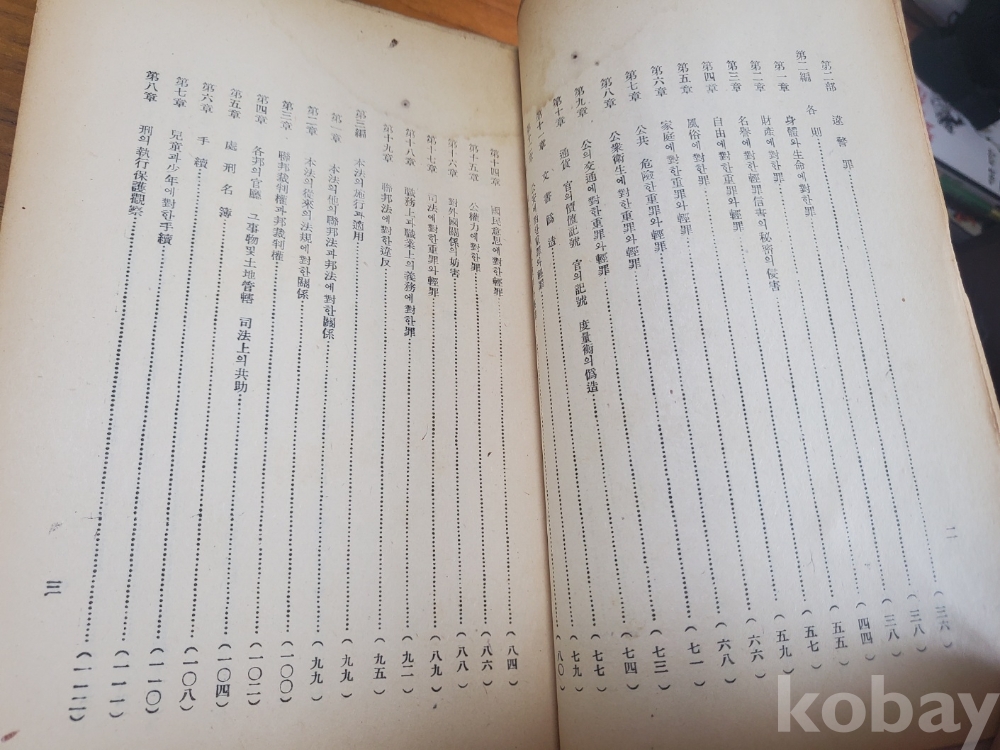 第二部 違警罪 (三六)
第二編 各則 (三八)
第一章 身體와生命에對한罪 (三八)
第二章 財産에對한罪 (四四)
第三章 名譽에對한輕罪信書의秘密의侵害 (五五)
第四章 自由에對한重罪와輕罪 (五七)
第五章 風俗에對한重罪와輕罪 (五九)
第六章 家庭에對한重罪와輕罪 (六六)
第七章 公共 危險한重罪와輕罪 (六八)
第八章 公衆衛生에對한重罪와輕罪 (七一)
第九章 公의交通에對한重罪와輕罪 (七三)
第十章 通貨 官의價値記號 官의記號 度量衡의僞造 (七四)
第十一章 文書僞造 (七七)
(七九)
(八〇)
二
第十四章 國民意思에對한輕罪 (八四)
第十五章 公權力에對한罪 (八六)
第十六章 對外國關係의妨害 (八八)
第十七章 司法에對한重罪와輕罪 (八九)
第十八章 職務上과職業上의義務에對한罪 (九一)
第十九章 聯邦法에對한違反 (九五)
第三編 本法의施行과適用 (九九)
第一章 本法의他의聯邦法과邦法에對한關係 (九九)
第二章 本法의從來의法規에對한關係 (一〇〇)
第三章 聯邦裁判權과邦裁判權 (一〇二)
第四章 各邦의官廳 그事物및土地管轄 司法上의共助 (一〇四)
第五章 處刑名簿 (一〇八)
第六章 手續 (一一〇)
第七章 兒童과少年에對한手續 (一一一)
第八章 刑의執行保護觀察 (一一二)
三
kobay